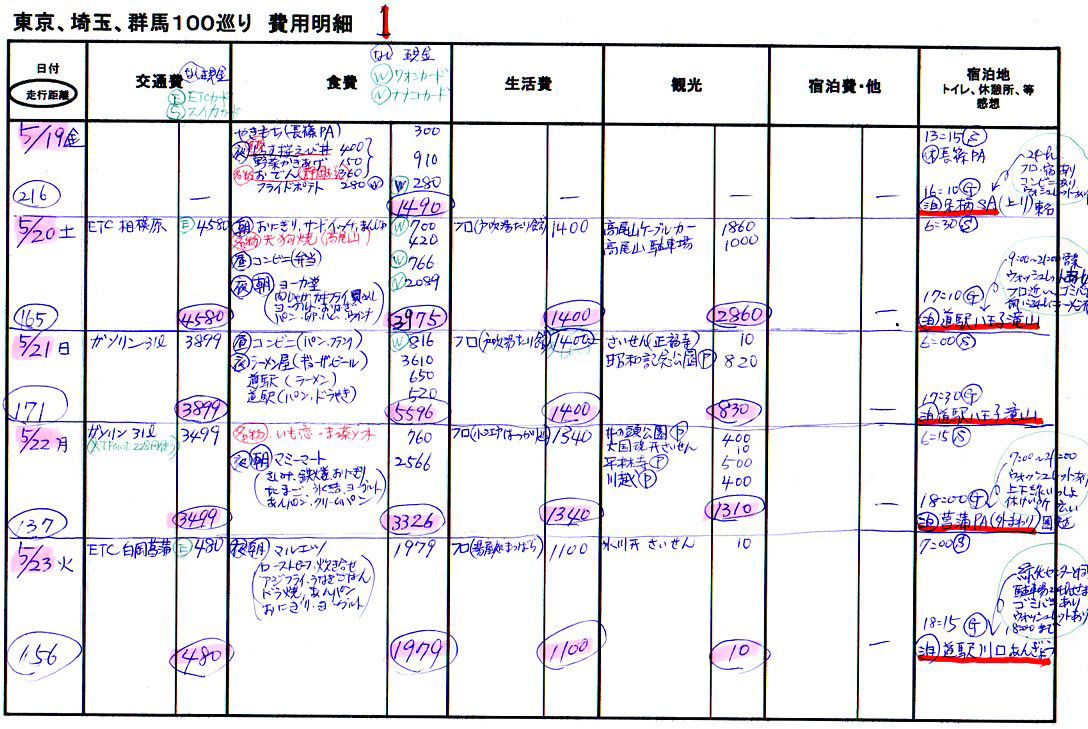 東京、埼玉、群馬100巡り 費用明細 1
日付
走行距離
交通費
なし 現金
E ETCカード
S スイカカード
食費
なし 現金
W ワオンカード
N ナナコカード
生活費
観光
宿泊費・他
宿泊地
トイレ、休憩所、等
感想
5/19金
216
—
やきもち(長篠PA) 300
夜
400
野菜かきあげ 150
910
名物 おでん 360
フライドポテト 280 W
W 280
1490
—
—
—
13=15 S
休 長篠PA
16=10 G
泊 足柄SA(上り) 東名
24h
フロ、宿あり
コンビニあり
ウォシュレットあり
5/20土
165
ETC 相模原 E 4580
4580
朝 おにぎり、サンドイッチ、まんじゅう W 700
名物 天狗焼(高尾山) 420
昼 コンビニ(弁当) W 766
夜 朝 ヨーカ堂 N 2089
3975
1400
1400
高尾山ケーブルカー 1860
高尾山 駐車場 1000
2860
—
6=30 S
17=10 G
泊 道駅八王子滝山
9:00〜21:00 営業
5/21日
171
ガソリン 31ℓ 3899
3899
昼 コンビニ(パン、 W 816
夜 ラーメン屋(ギョーザ、ビール) 3610
道駅(ラーメン) 650
道駅(パン、ドラやき) 520
5596
1400
1400
さいせん(正福寺) 10
昭和記念公園 P 820
830
—
6=00 S
17=30 G
泊 道駅八王子滝山
5/22月
137
ガソリン 31ℓ 3499
3499
名物 いも恋 760
夜 朝 マミーマート 2566
さしみ、鉄火巻、おにぎり
あんパン、クリームパン
3326
1340
1340
井の頭公園 P 400
10
平林寺 P 500
川越 P 400
1310
—
6=15 S
18=00 G
泊 菖蒲PA(外まわり) 圏央道
7:00〜21:00
ウォシュレットあり
5/23火
156
ETC 白岡菖蒲 E 480
480
夜 朝 マルエツ 1979
ローストビーフ、炊き合せ
アジフライ、うなぎごはん
ドラ焼、あんパン
おにぎり、ヨーグルト
1979
1100
1100
氷川 さいせん 10
10
—
7=00 S
18=15 G
泊 道駅川口あんぎょう
緑化センターと
駐車場24h
ゴミバコあり
ウォシュレットあり